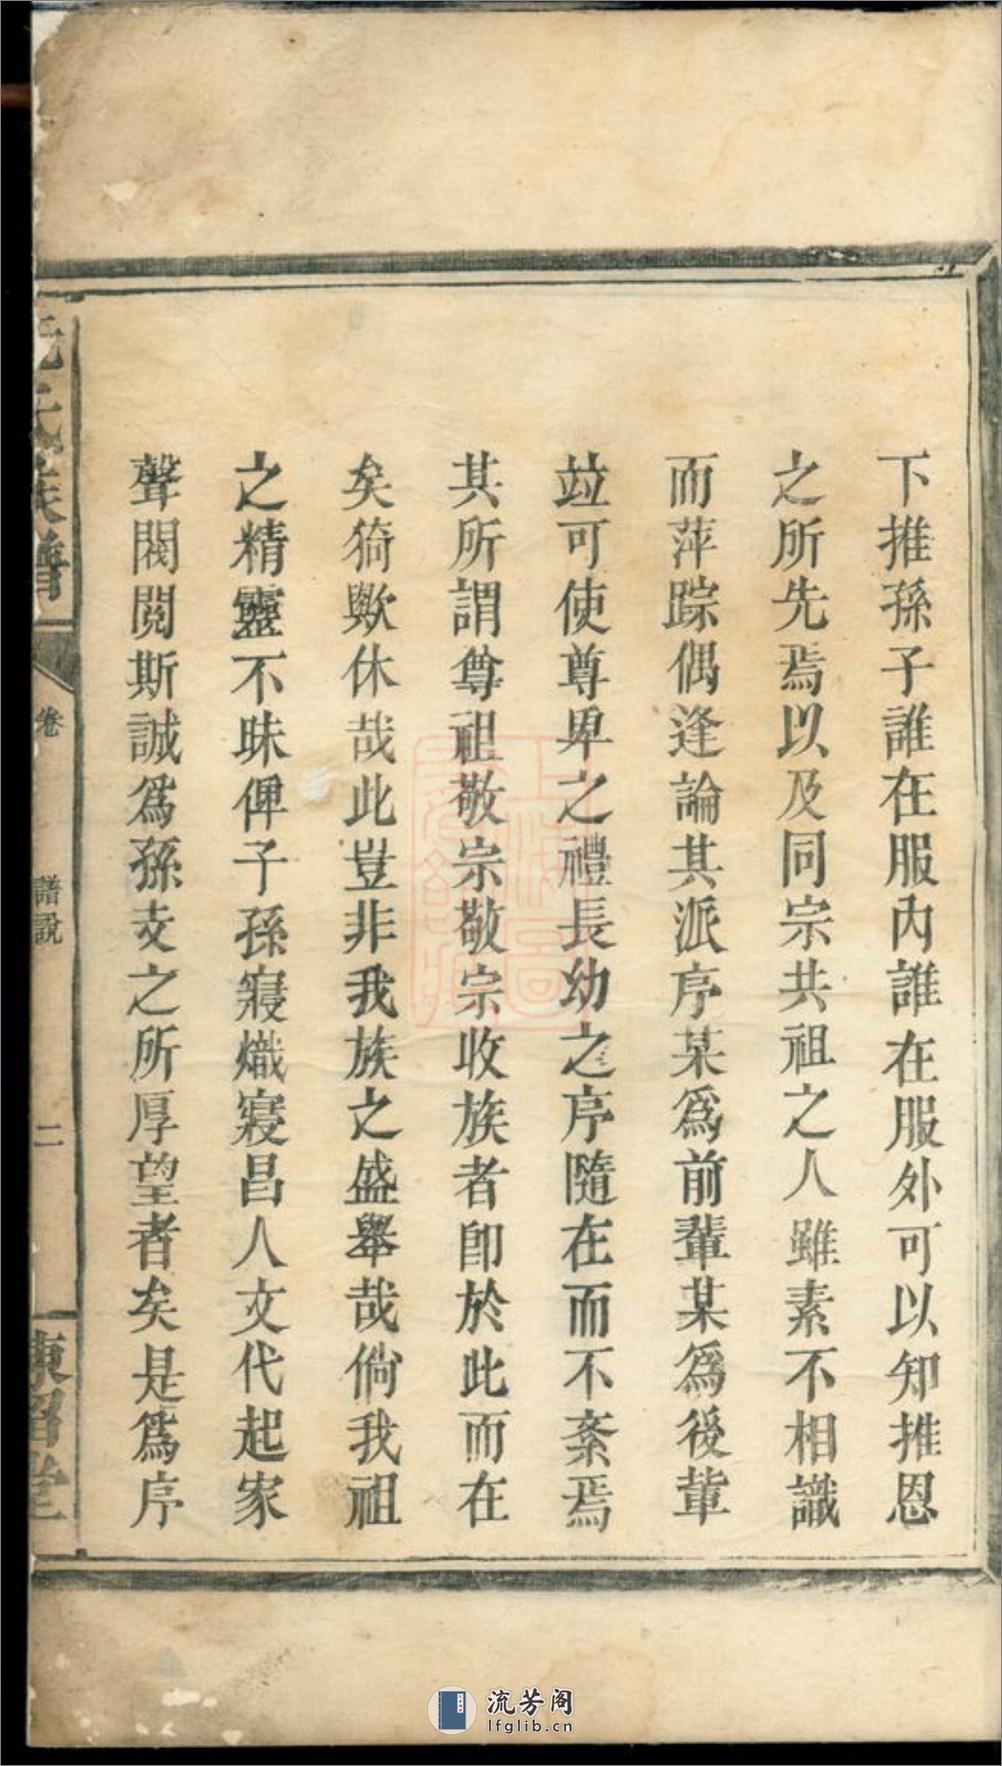 下推孫子誰在服內誰在服外可以知推恩
之所先焉以及同宗共祖之人雖素不相識
而萍踪偶逢論其派序某爲前輩某爲後輩
竝可使尊卑之禮長幼之序隨在而不紊焉
其所謂尊祖敬宗敬宗收族者卽於此而在
矣猗歟休哉此豈非我族之盛舉哉倘我祖
之精靈不昧俾子孫寖熾寖昌人文代起家
聲閥閱斯誠爲孫支之所厚望者矣是爲序
氏族譜
卷
譜說
二
流芳阁
lfglib.cn